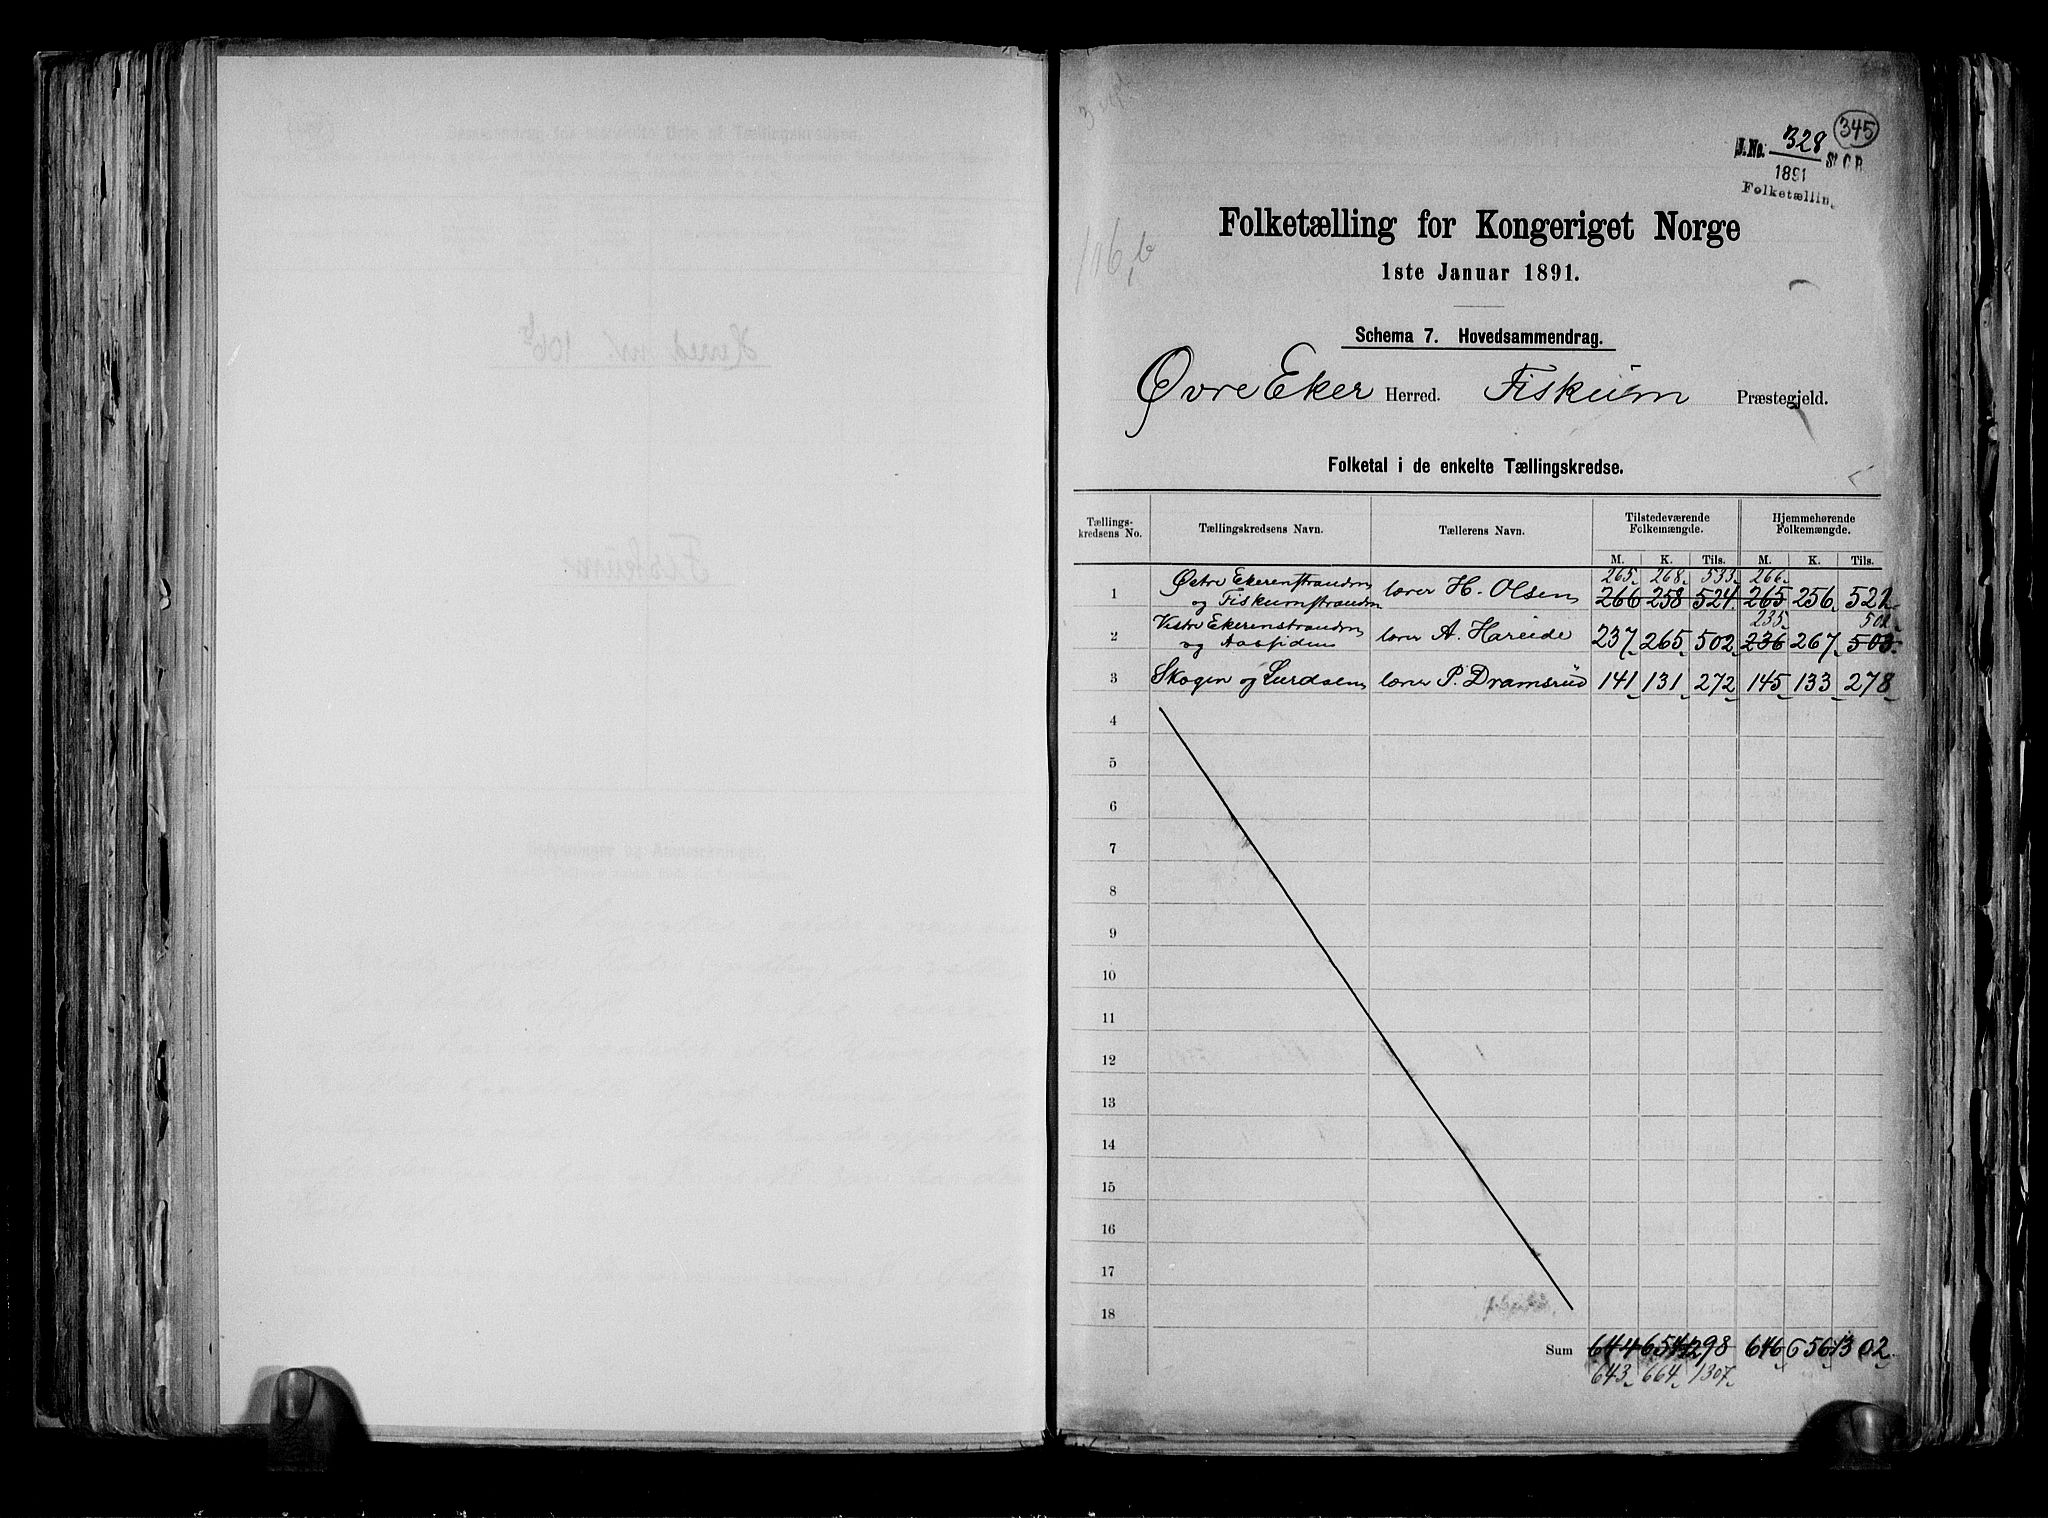 345
J.No. 328 St. C. B.
1891
Folketælling
Folketælling for Kongeriget Norge
1ste Januar 1891.
Schema 7. Hovedsammendrag.
Øvre Eker Herred. Fiskum Præstegjeld.
Folketal i de enkelte Tællingskredse.
Tællings-kredsens No. Tællingskredsens Navn. Tællerens Navn. Tilstedeværende Folkemængde. Hjemmehørende Folkemængde.
M. K. Tils. M. K. Tils.
265 268 533 266
1 Østre Ekerenstranden og Fiskumstranden lærer H. Olsen 266 258 524 265 256 522
235 502
2 Vestre Ekerenstranden og Aassiden lærer A. Hareide 237 265 502 236 267 503
3 Skogen og Lurdalen lærer P. Dramsrud 141 131 272 145 133 278
4
5
6
7
8
9
10
11
12
13
14
15
16
17
18
Sum 644 654 1298 646 656 1302
643 664 1307